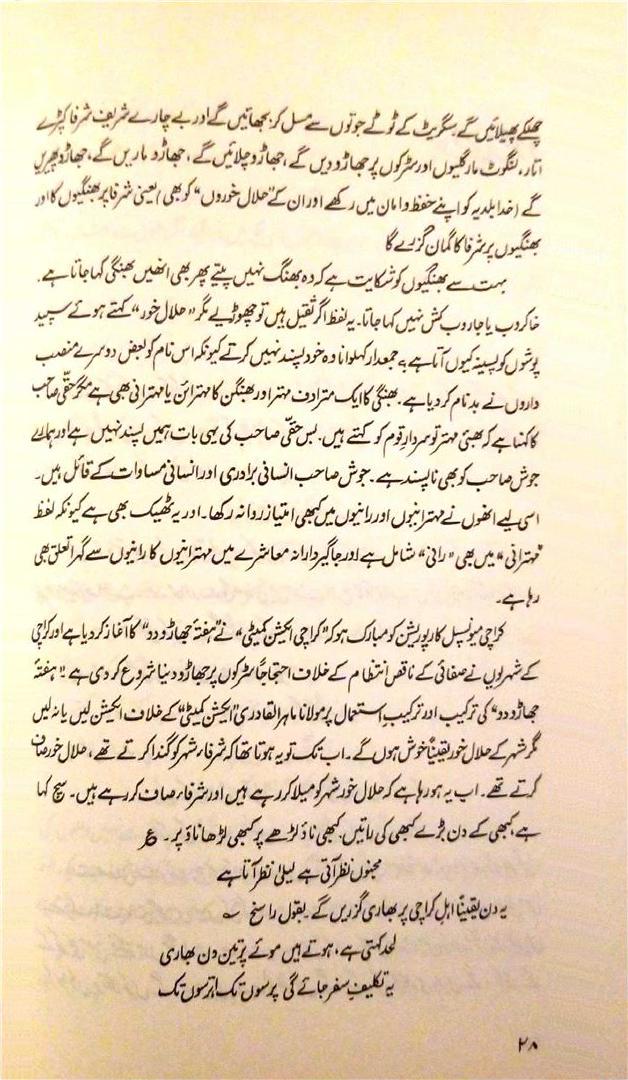 چھلکے پھیلائیں گے سگریٹ کے ٹوٹے جوتوں سے مسل کر بجھائیں گے اور بے چارے شریف شرفا کپڑے
اتار، لنگوٹ مار گلیوں اور سڑکوں پر جھاڑو دیں گے، جھاڑو چلائیں گے، جھاڑو ماریں گے، جھاڑو پھیریں
گے (خدا بلدیہ کو اپنے حفظ و امان میں رکھے اور ان کے "حلال خوروں" کو بھی) یعنی شرفا پر بھنگیوں کا اور
بھنگیوں پر شرفا کا گمان گزرے گا
بہت سے بھنگیوں کو شکایت ہے کہ وہ بھنگ نہیں پیتے پھر بھی انھیں بھنگی کہا جاتا ہے۔
خاکروب یا جاروب کش نہیں کہا جاتا۔ یہ لفظ اگر ثقیل ہیں تو چھوڑیے مگر "حلال خور" کہتے ہوئے سپید
پوشوں کو پسینہ کیوں آتا ہے۔ جمعدار کہلوانا وہ خود پسند نہیں کرتے کیونکہ اس نام کو بعض دوسرے منصب
داروں نے بدنام کر دیا ہے۔ بھنگی کا ایک مترادف مہتر اور بھنگن کا مہترائن یا مہترانی بھی ہے مگر حقّی صاحب
کا کہنا ہے کہ بھئی مہتر تو سردارِ قوم کو کہتے ہیں۔ بس حقّی صاحب کی یہی بات ہمیں پسند نہیں ہے اور ہمارے
جوش صاحب کو بھی ناپسند ہے۔ جوش صاحب انسانی برادری اور انسانی مساوات کے قائل ہیں۔
اسی لیے انھوں نے مہترانیوں اور رانیوں میں کبھی امتیاز روا نہ رکھا۔ اور یہ ٹھیک بھی ہے کیونکہ لفظ
"مہترانی" میں بھی "رانی" شامل ہے اور جاگیردارانہ معاشرے میں مہترانیوں کا رانیوں سے گہرا تعلق بھی
رہا ہے۔
کراچی میونسپل کارپوریشن کو مبارک ہو کہ "کراچی ایکشن کمیٹی" نے "ہفتۂ جھاڑو دو" کا آغاز کر دیا ہے اور کراچی
کے شہریوں نے صفائی کے ناقص انتظام کے خلاف احتجاجاً سڑکوں پر جھاڑو دینا شروع کر دی ہے "ہفتۂ
جھاڑو دو" کی ترکیب اور ترکیبِ استعمال پر مولانا ماہر القادری "ایکشن کمیٹی" کے خلاف ایکشن لیں یا نہ لیں
مگر شہر کے حلال خور یقیناً خوش ہوں گے۔ اب تک تو یہ ہوتا تھا کہ شرفاء شہر کو گندا کرتے تھے، حلال خور صاف
کرتے تھے۔ اب یہ ہو رہا ہے کہ حلال خور شہر کو میلا کر رہے ہیں اور شرفاء صاف کر رہے ہیں۔ سچ کہا
ہے، کبھی کے دن بڑے کبھی کی راتیں۔ کبھی ناؤ لڑھے پر کبھی لڑھا ناؤ پر۔ ع
مجنوں نظر آتی ہے لیلیٰ نظر آتا ہے
یہ دن یقیناً اہلِ کراچی پر بھاری گزریں گے۔ بقول راسخ ؎
لحد کہتی ہے، ہوتے ہیں موئے پر تین دن بھاری
یہ تکلیفِ سفر جائے گی پرسوں تک اترسوں تک
۲۸